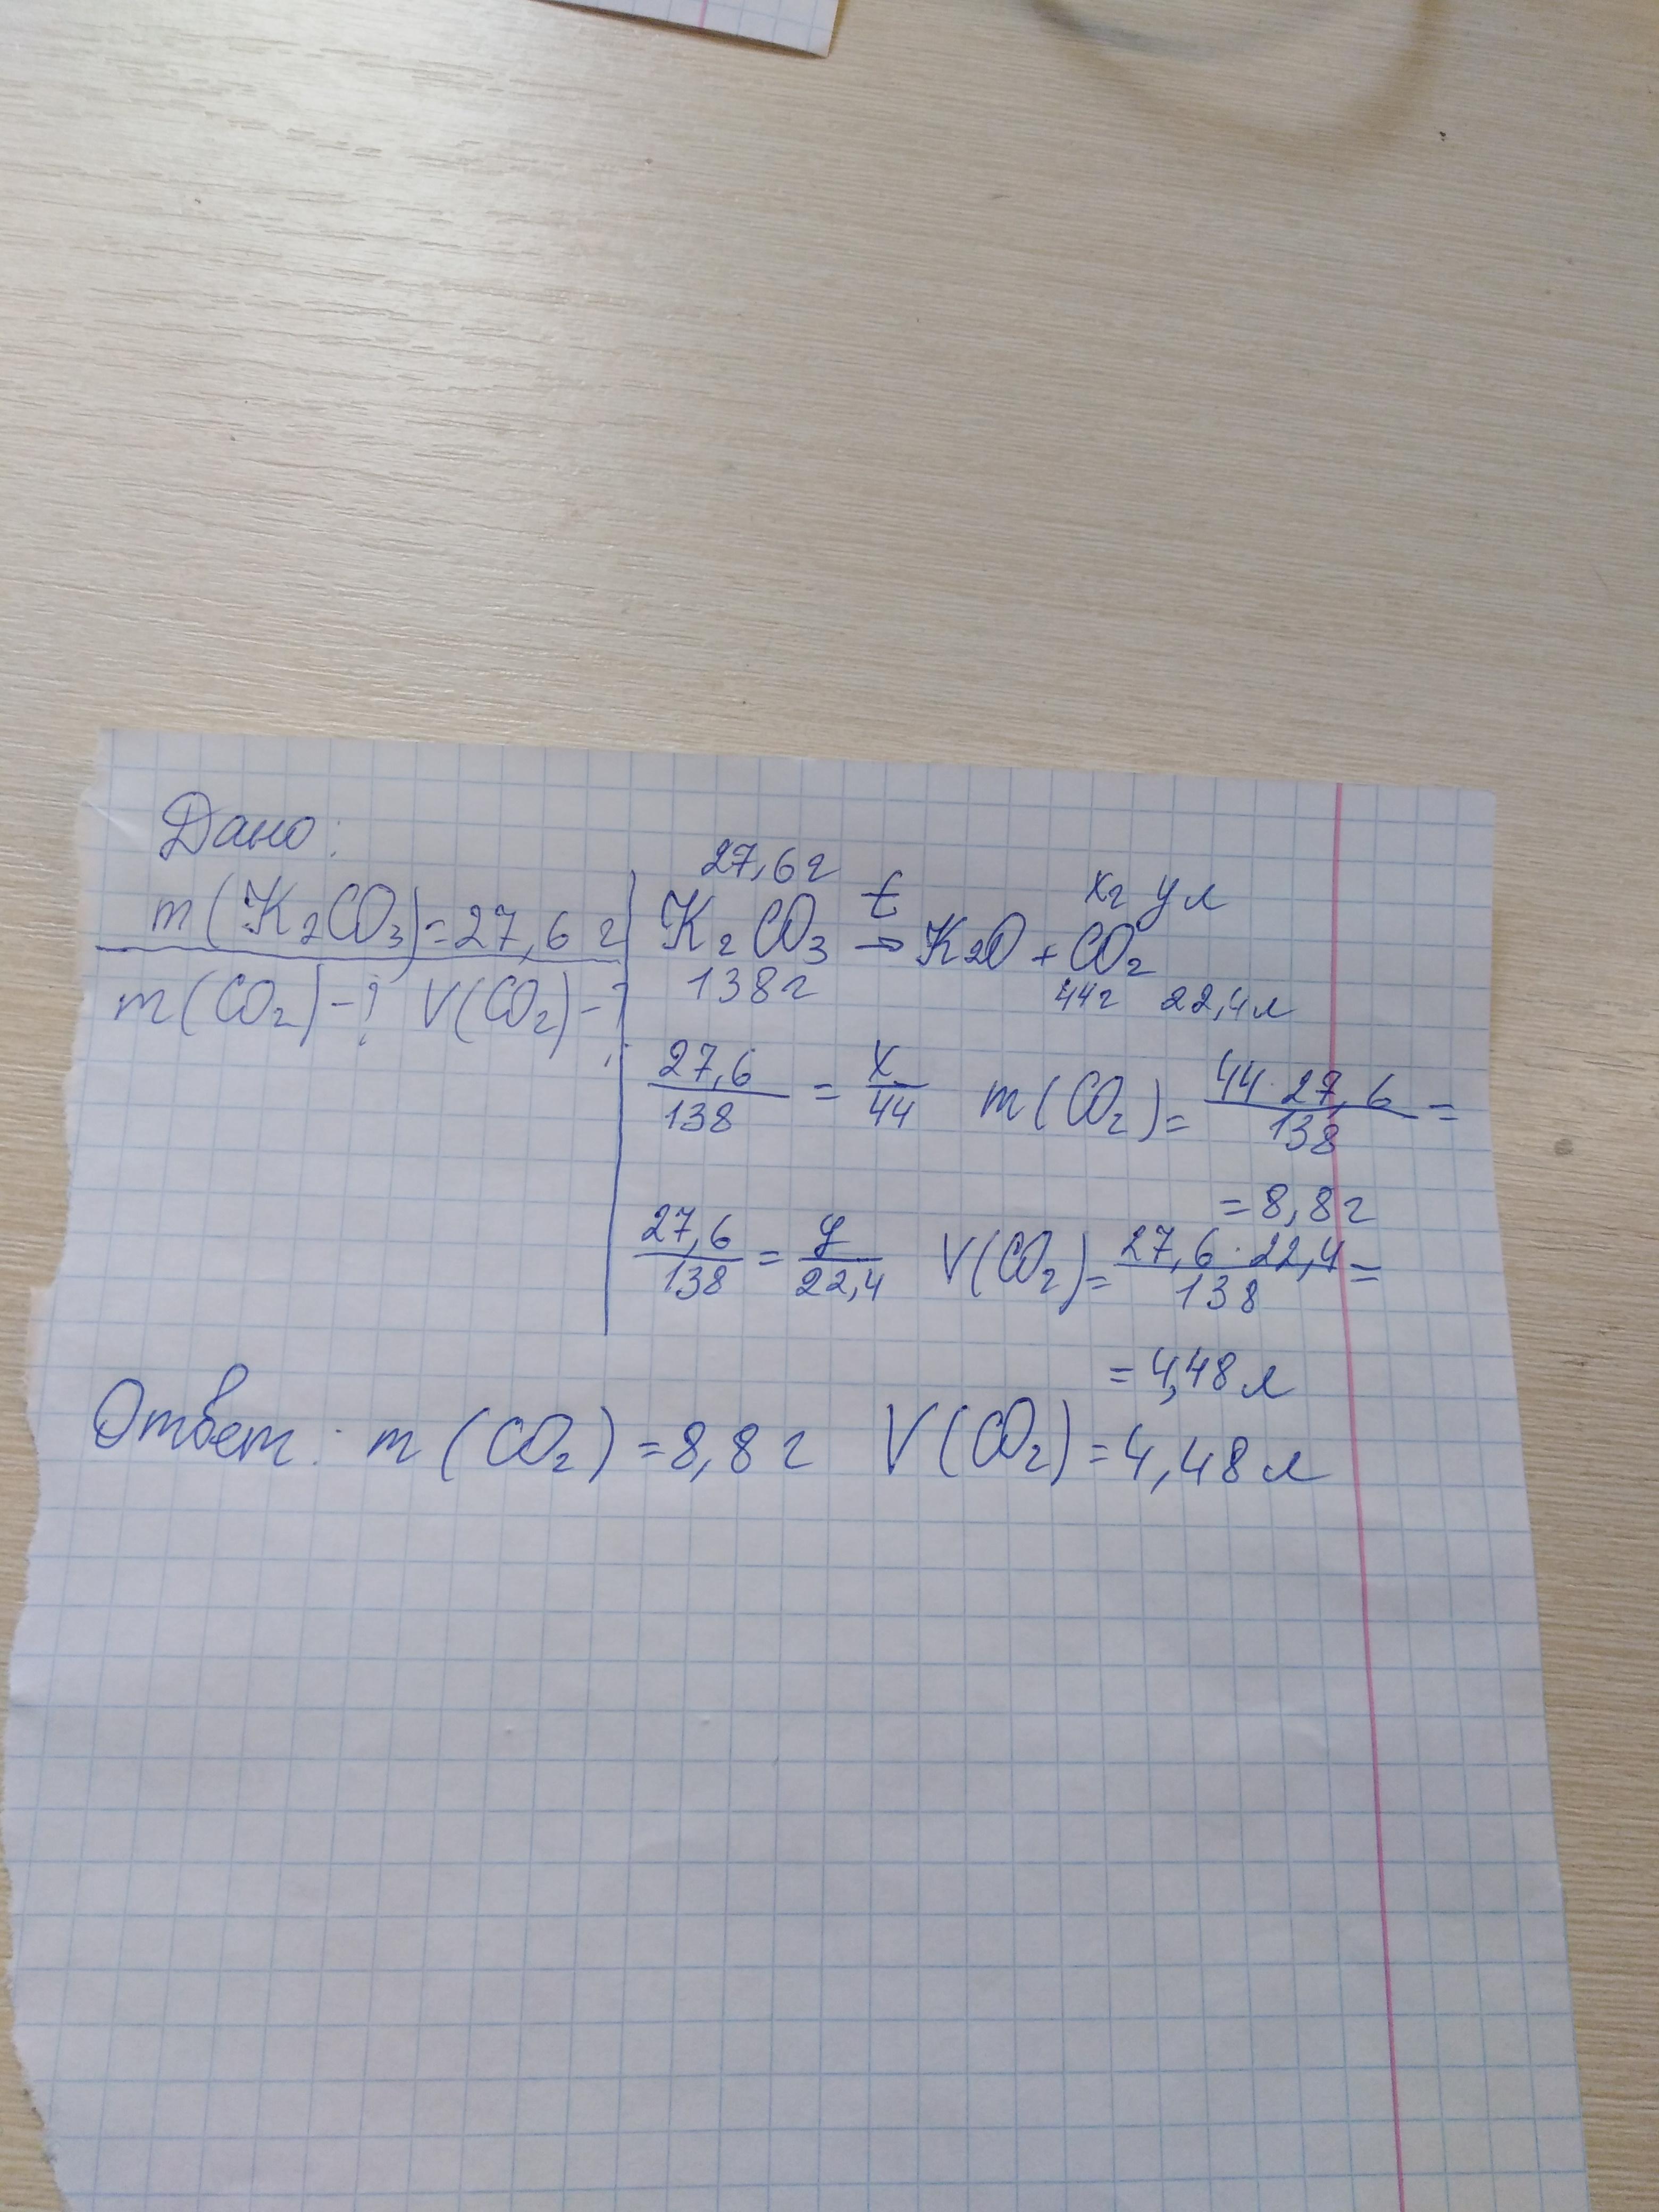 Дано:
m(K2CO3)=27,6 г
m(CO2)-? V(CO2)-?
27,6г xг y л
K2CO3 t→ K2O + CO2
138г 44г 22,4л
27,6/138 = x/44 m(CO2)= 44·27,6/138 =
= 8,8г
27,6/138 = y/22,4 V(CO2)= 27,6·22,4/138 =
= 4,48 л
Ответ: m(CO2)=8,8 г V(CO2)=4,48 л